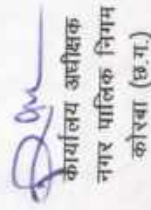 कार्यालय अधीक्षक
नगर पालिक निगम
कोरबा (छ.ग.)